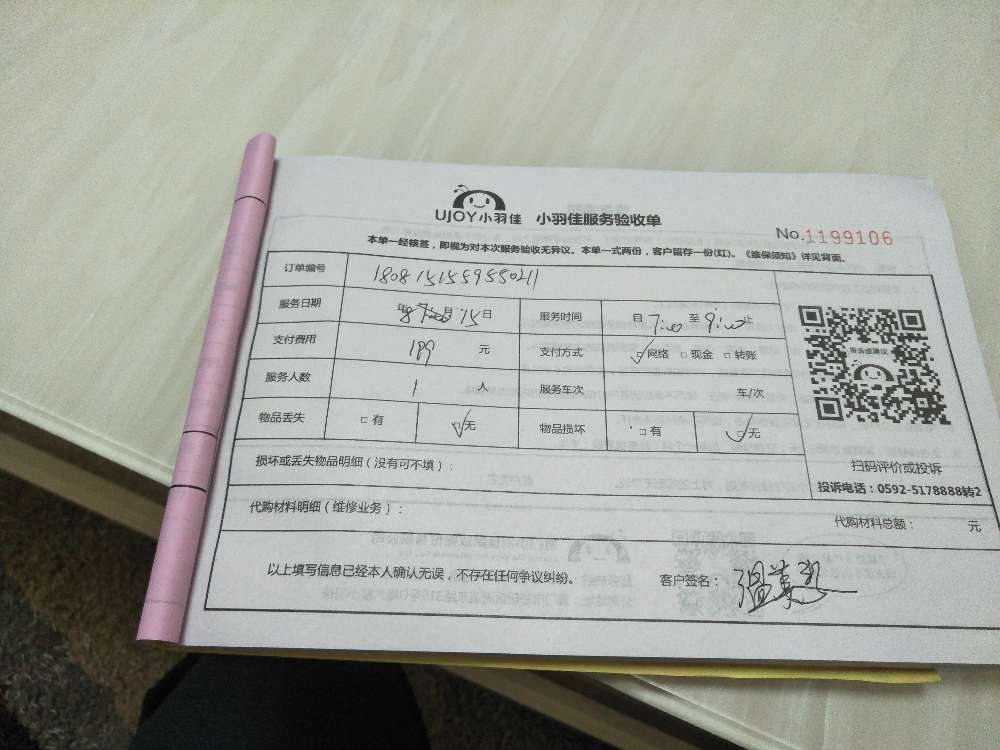 UJOY小羽佳 小羽佳服务验收单
No.1199106
本单一经核签，即视为对本次服务验收无异议。本单一式两份，客户留存一份(红)。《维保须知》详见背面。
订单编号 1808151559550211
服务日期 年 8月 15日 服务时间 自 7:00 至 9:00 止
支付费用 199 元 支付方式 ☑网络 □现金 □转账
服务人数 1 人 服务车次 车/次
物品丢失 □有 ☑无 物品损坏 □有 ☑无
投诉或建议
扫码评价或投诉
投诉电话：0592-5178888转2
损坏或丢失物品明细（没有可不填）：
代购材料明细（维修业务）： 代购材料总额： 元
以上填写信息已经本人确认无误，不存在任何争议纠纷。 客户签名：